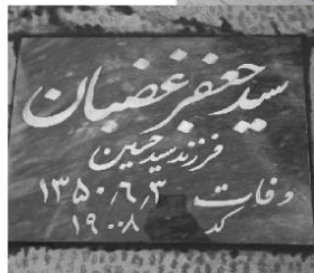 سید جعفر غضبان
فرزند سید حسین
وفات ۱۳۵۰٫۶٫۳
کد ۱۹۰۰۸